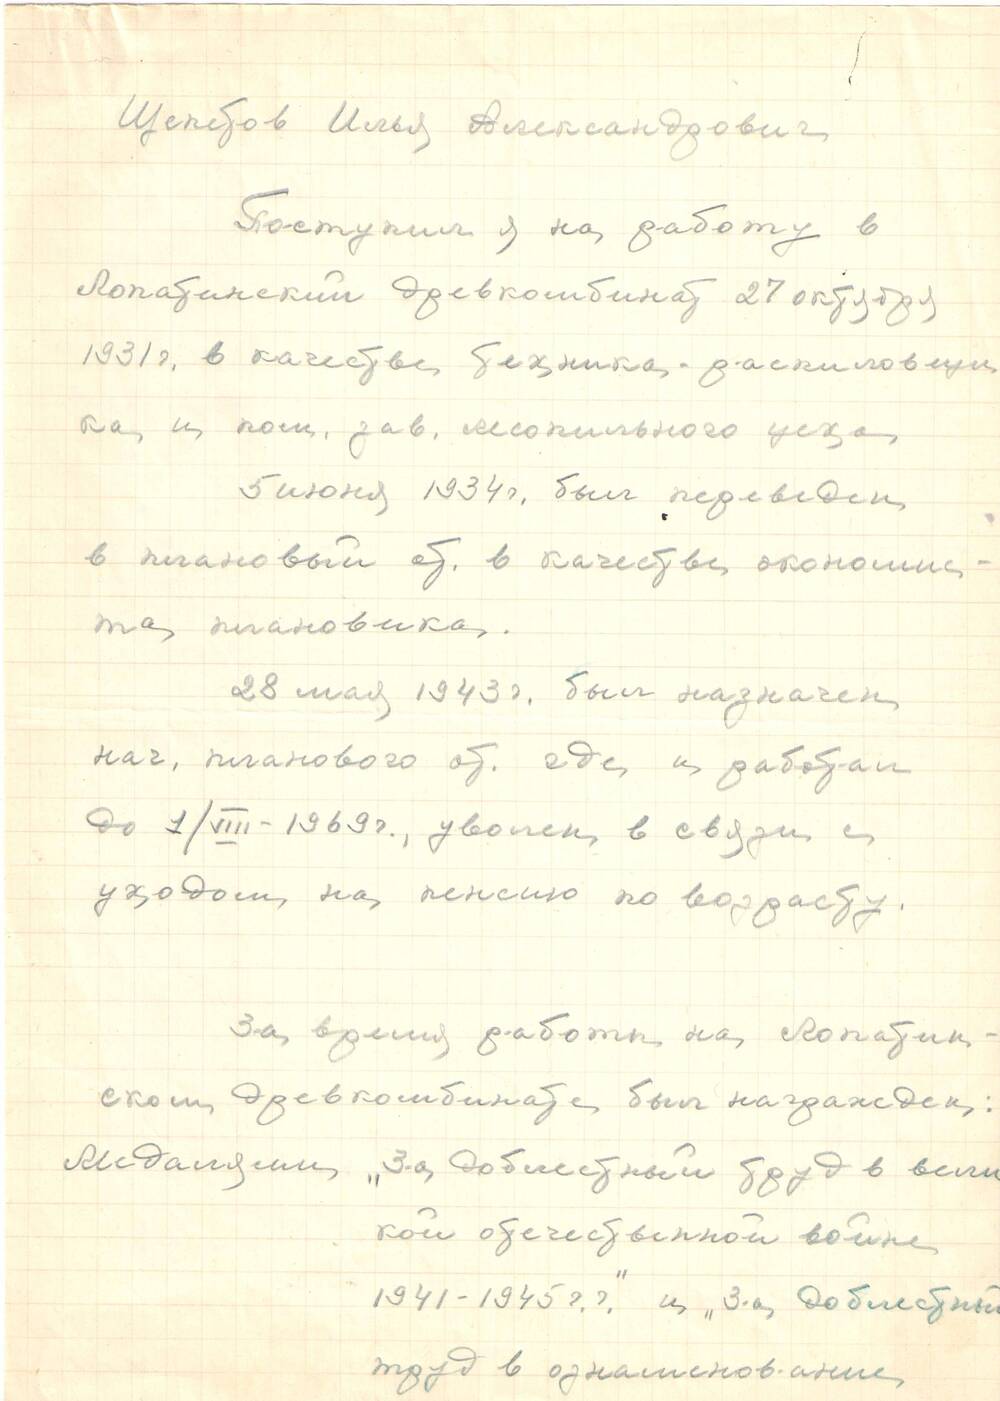 Щепетов Илья Александрович
Поступил я на работу в
Лопатинский древкомбинат 27 октября
1931 г. в качестве техника-распиловщи
ка и пом. зав. лесопильного цеха
5 июня 1934 г. был переведен
в плановый от. в качестве экономис-
та плановика.
28 мая 1943 г. был назначен
нач. планового от. где и работал
до 1/VIII-1969 г., уволен в связи с
уходом на пенсию по возрасту.
За время работы на Лопатин-
ском древкомбинате был награжден:
Медалями „За доблестный труд в вели
кой отечественной войне
1941-1945 г.г." и „За доблестный
труд в ознаменование